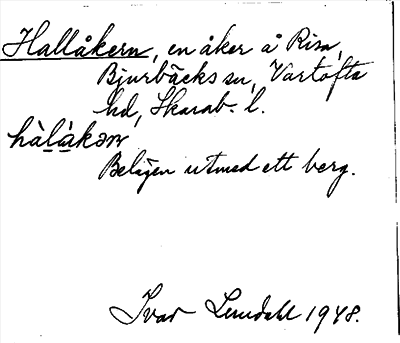 Hallåkern, en åker å Risa,
Bjurbäcks sn, Vartofta
hd, Skarab. l.
hàlàkən
Belägen utmed ett berg.
Ivar Lundahl 1948.